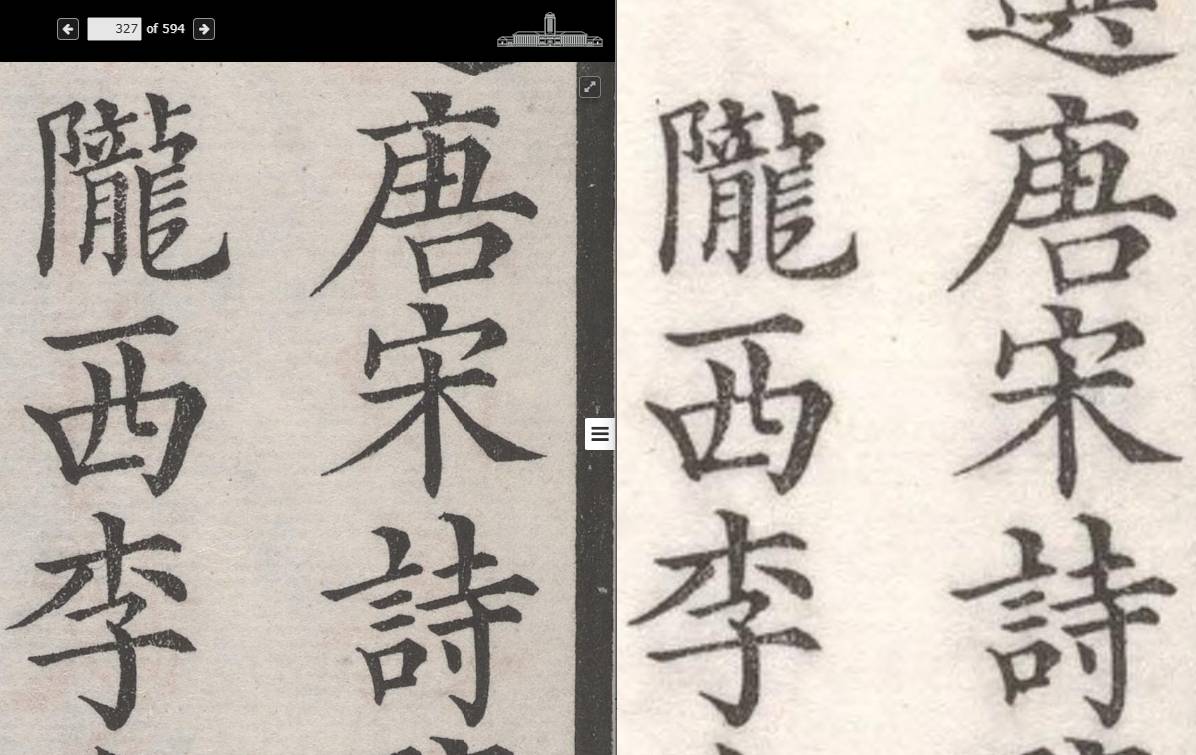 327 of 594
唐宋詩
隴西李
唐宋詩
隴西李